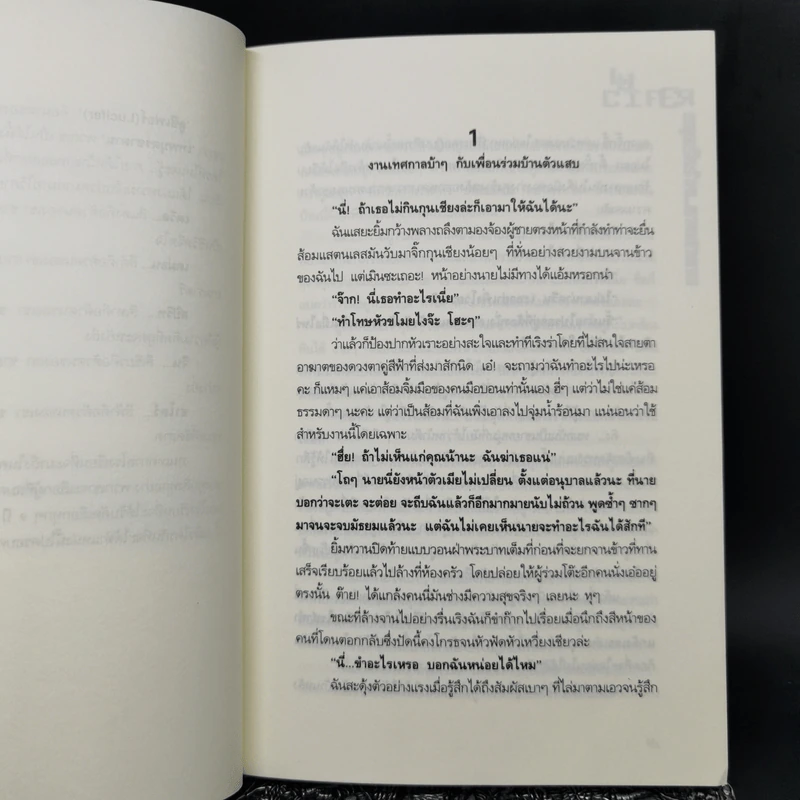 1
งานเทศกาลบ้าๆ กับเพื่อนร่วมบ้านตัวแสบ
“นี่! ถ้าเธอไม่กินกุนเชียงล่ะก็เอามาให้ฉันได้นะ”
ฉันแสยะยิ้มกว้างพลางถลึงตามองจ้องผู้ชายตรงหน้าที่กำลังทำท่าจะยื่น
ส้อมแสตนเลสมันวับมาจิ๊กกุนเชียงน้อยๆ ที่หั่นอย่างสวยงามบนจานข้าว
ของฉันไป แต่เมินซะเถอะ! หน้าอย่างนายไม่มีทางได้แอ้มหรอกน่า
“จ๊าก! นี่เธอทำอะไรเนี่ย”
“ทำโทษหัวขโมยไงจ๊ะ โฮะๆ”
ว่าแล้วก็ป้องปากหัวเราะอย่างสะใจและทำทีเริงร่าโดยที่ไม่สนใจสายตา
อาฆาตของดวงตาคู่สีฟ้าที่ส่งมาสักนิด เอ๋! จะถามว่าฉันทำอะไรไปน่ะเหรอ
คะ ก็แหมๆ แค่เอาส้อมจิ้มมือของคนมือบอนเท่านั้นเอง ฮี่ๆ แต่ว่าไม่ใช่แค่ส้อม
ธรรมดาๆ นะคะ แต่ว่าเป็นส้อมที่ฉันเพิ่งเอาลงไปจุ่มน้ำร้อนมา แน่นอนว่าใช้
สำหรับงานนี้โดยเฉพาะ
“ฮึ่ย! ถ้าไม่เห็นแก่คุณน้านะ ฉันฆ่าเธอแน่”
“โถๆ นายนี่ยังหน้าตัวเมียไม่เปลี่ยน ตั้งแต่อนุบาลแล้วนะ ที่นาย
บอกว่าจะเตะ จะต่อย จะถีบฉันแล้วก็อีกมากมายนับไม่ถ้วน พูดซ้ำๆ ซากๆ
มาจนจะจบมัธยมแล้วนะ แต่ฉันไม่เคยเห็นนายจะทำอะไรฉันได้สักที”
ยิ้มหวานปิดท้ายแบบวอนฝ่าพระบาทเต็มที่ก่อนที่จะยกจานข้าวที่ทาน
เสร็จเรียบร้อยแล้วไปล้างที่ห้องครัว โดยปล่อยให้ผู้ร่วมโต๊ะอีกคนนั่งเอ๋ออยู่
ตรงนั้น ต๊าย! ได้แกล้งคนนี่มันช่างมีความสุขจริงๆ เลยนะ หุๆ
ขณะที่ล้างจานไปอย่างรื่นเริงฉันก็ขำก๊ากไปเรื่อยเมื่อนึกถึงสีหน้าของ
คนที่โดนตอกกลับซึ่งปัดนี้คงโกรธจนหัวฟัดหัวเหวี่ยงเชียวล่ะ
“นี่...ขำอะไรเหรอ บอกฉันหน่อยได้ไหม”
ฉันสะดุ้งตัวอย่างแรงเมื่อรู้สึกได้ถึงสัมผัสเบาๆ ที่ไล่มาตามเอวจนรู้สึก